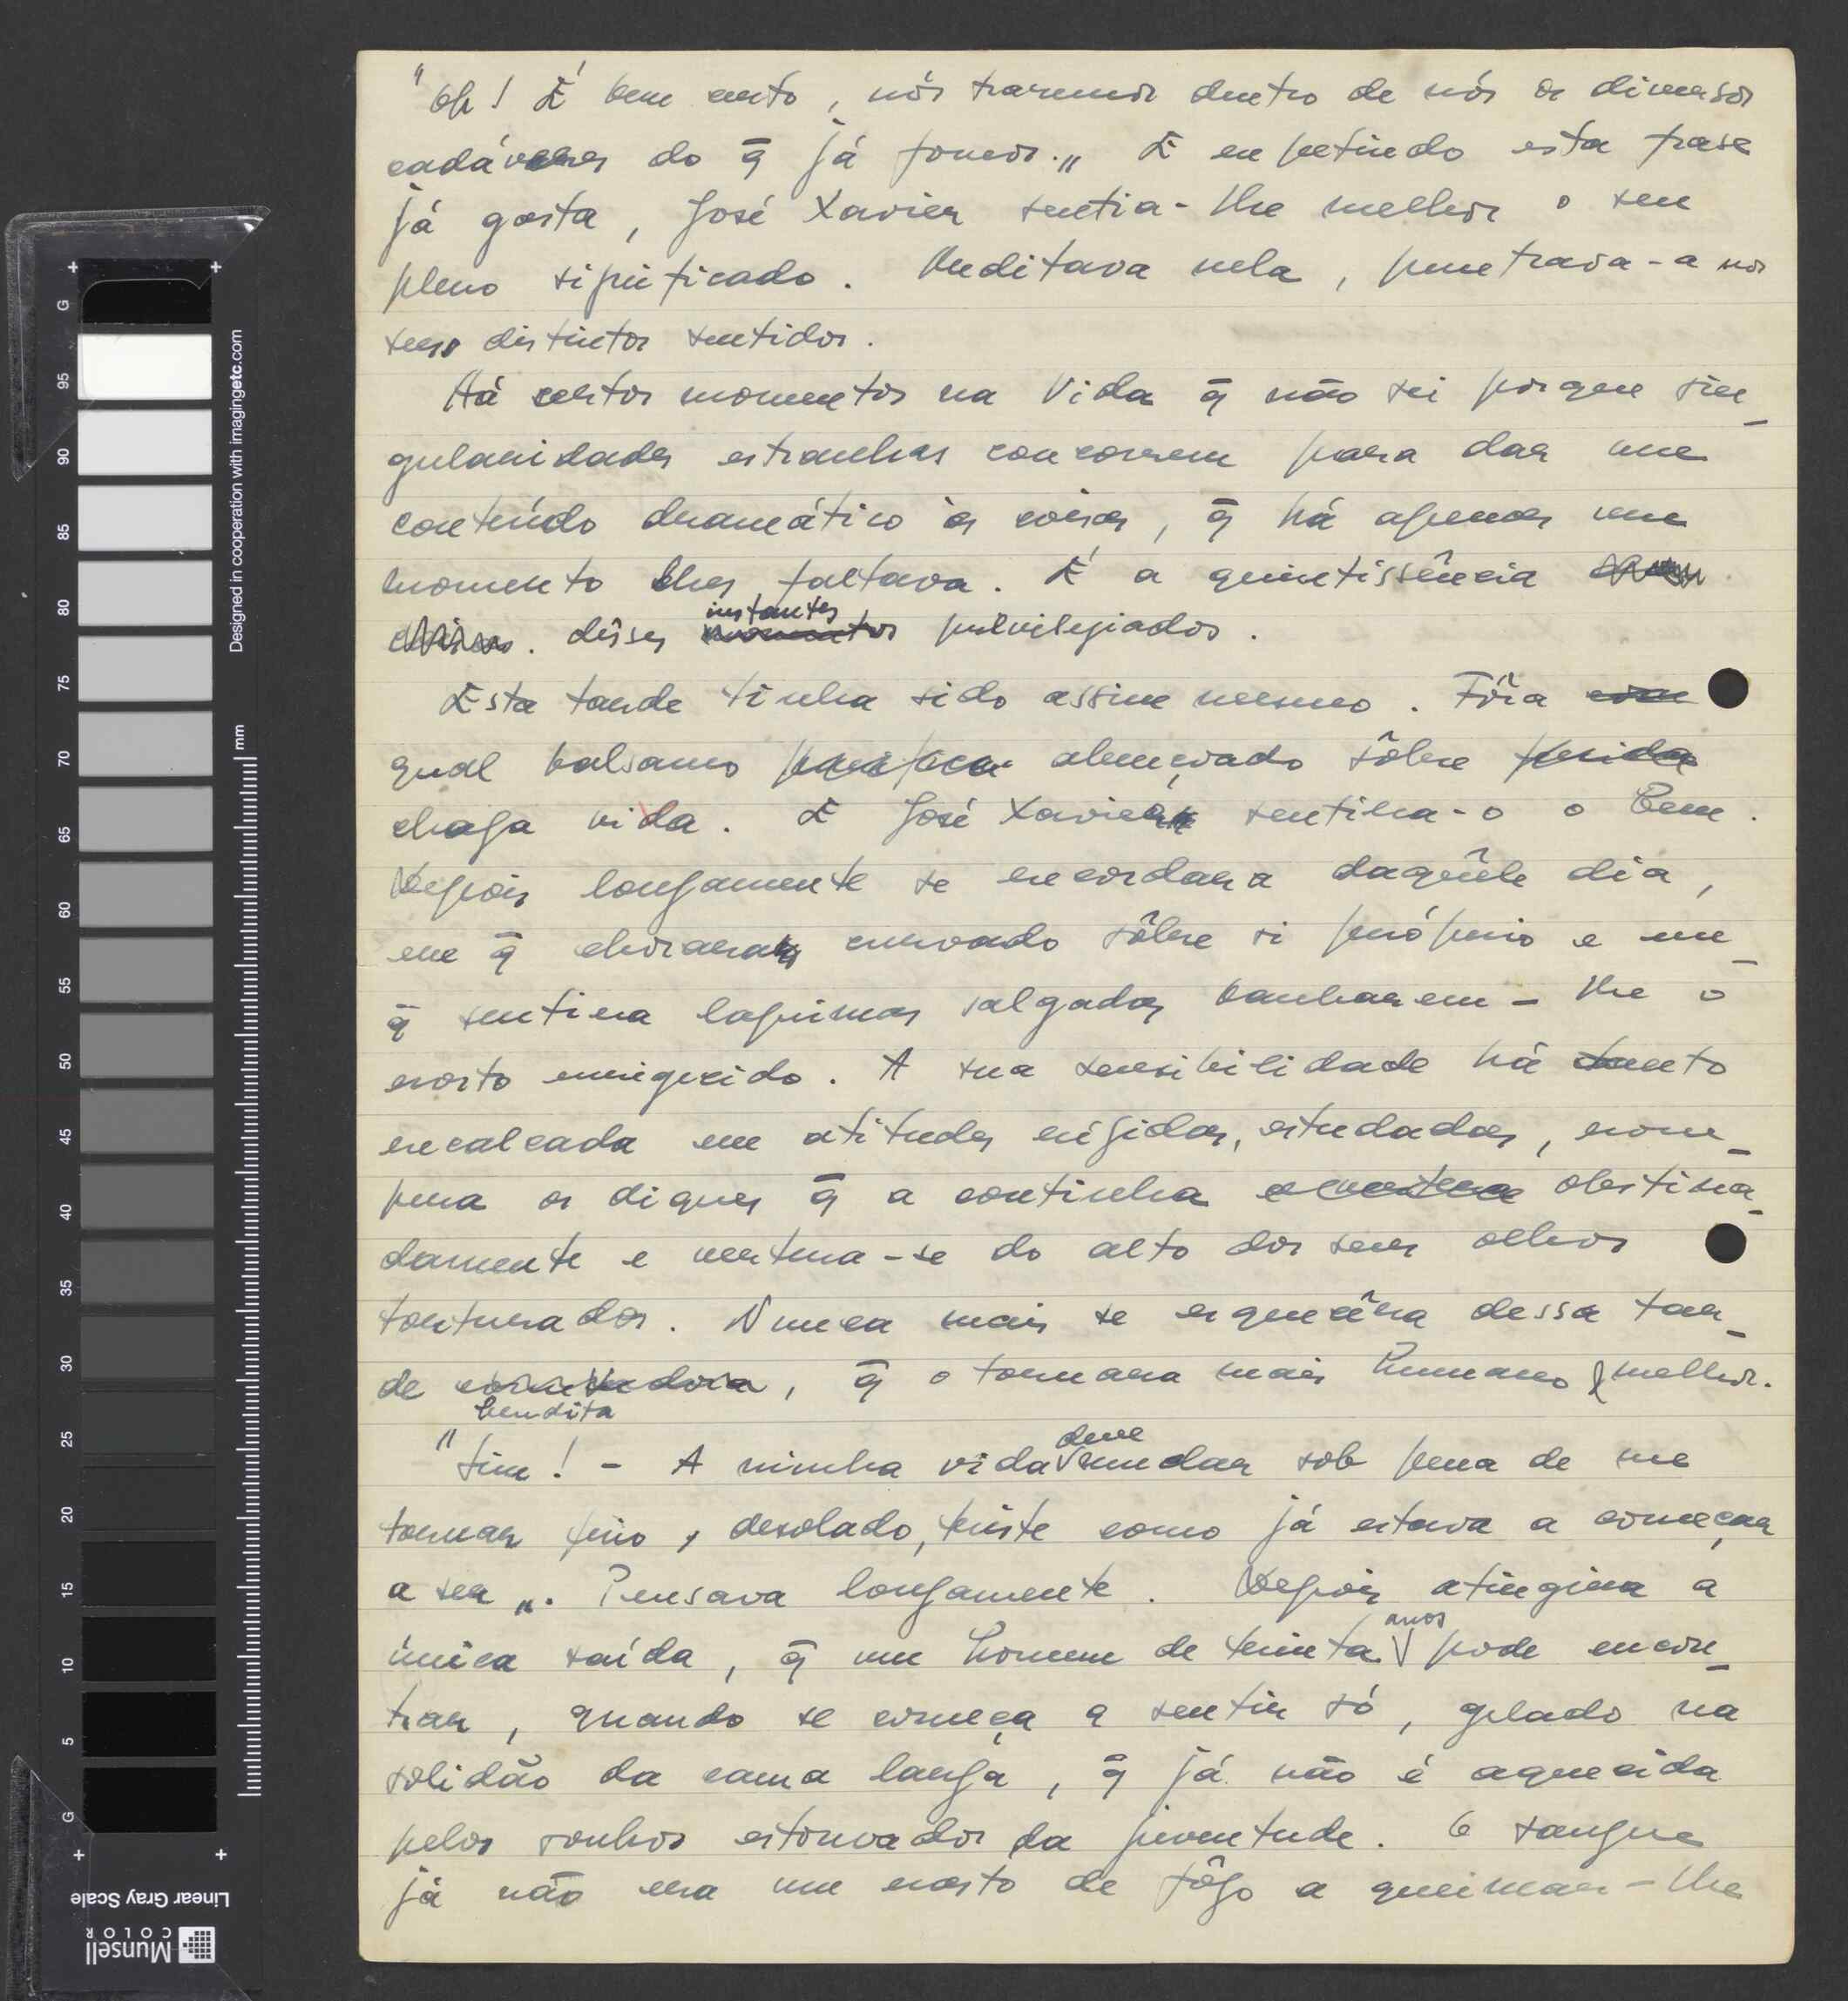 "Oh! É bem certo, nós trazemos dentro de nós os diversos
cadáveres do q̄ já fomos." E repetindo esta frase
já gasta, José Xavier sentia-lhe melhor o seu
pleno significado. Meditava nela, penetrava-a nos
seus distintos sentidos.
Há certos momentos na Vida q̄ não sei porque sin_
gularidades estranhas concorrem para dar um
conteúdo dramático às coisas, q̄ há apenas um
momento lhes faltava. É a quintissência
dêsses instantes momentos privilegiados.
Esta tarde tinha sido assim mesmo. Fôra com
qual balsamo purificar abençoado sôbre ferida
chaga vida. E José Xavier sentira-o o Bem.
Depois longamente se recordara daquêle dia,
em q̄ chorara curvado sôbre si próprio e em_
q̄ sentira lagrimas salgadas banharem-lhe o
rosto enrigecido. A sua sensibilidade há tanto
recalcada em atitudes rígidas, estudadas, rom_
pera os diques q̄ a continha obstina_
damente e vertera-se do alto dos seus olhos
torturados. Nunca mais se erguêra dessa tar_
de bendita, q̄ o tornara mais humano e melhor.
"Sim! - A minha vida deve mudar sob pena de me
tornar frio, desolado, triste como já estava a começar
a ser". Pensava longamente. Depois atingira a
única saída, q̄ um homem de trinta anos pode encon_
trar, quando se começa a sentir só, gelado na
solidão da cama larga, q̄ já não é aquecida
pelos sonhos estouvados da juventude. O sangue
já não era um rasto de fôgo a queimar-lhe
Designed in cooperation with imagingetc.com
mm
G 95 90 85 80 75 70 65 60 55 50 45 40 35 30 25 20 15 10 5 G
Linear Gray Scale
Munsell
COLOR